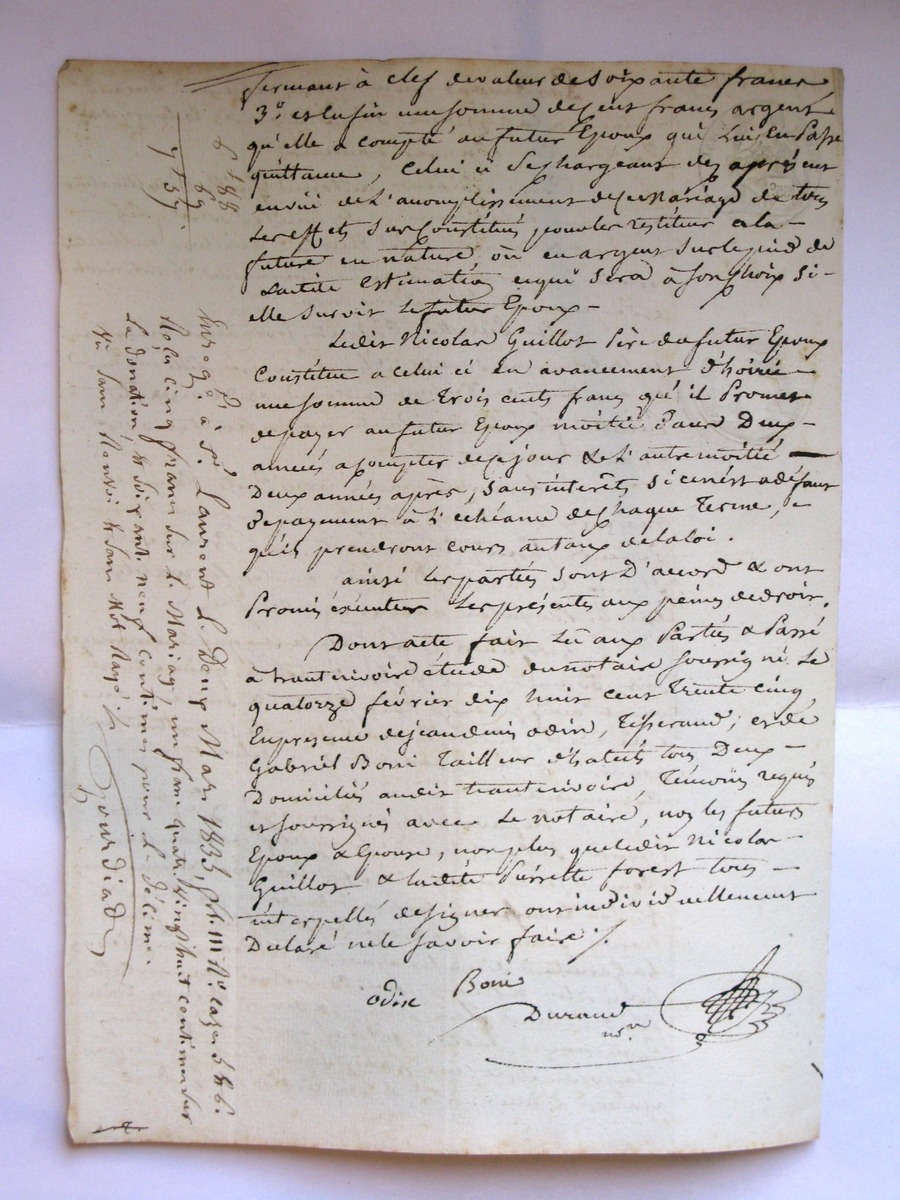 fermant à clef de valeur de soixante francs
3.° et enfin une somme de cent francs argent
qu'elle a compté au futur Epoux qui lui en Passe
quittance, celui ci se chargeant dès aprésent
en vüe de L'accomplissement de ce mariage de tous
Les effets sus Constitués, pour les restituer a la
future en nature, ou en argent sur le pied de
Laditte Estimation ce qui sera à son choix si
elle survit Le futur Epoux —
Ledit Nicolas Guillot Père du futur Epoux
Constitue a celui ci en avancement d'hoirie —
une somme de trois cents francs qu'il Promet
de payer au futur Epoux moitié dans Deux —
années a compter de ce jour & L'autre moitié —
Deux années après, sans intérêts si ce n'est a défaut
de payement à L'échéance de chaque Terme,
qu'ils prendront cours au taux de la loi.
ainsi Les parties sont D'accord & ont
Promis éxécuter Les présentes aux peines de droit.
Dont acte fait Lu aux Parties & Passé
à trantenivoire etude du notaire soussigné Le
quatorze février dix huit cent Trente cinq
En presence de jean denis odin, Tisserand, et de
Gabriel Boni Tailleur d'habits tous Deux —
Domiciliés audit trantenivoire, Témoins requis
et soussignés avec Le notaire, non les futurs
Epoux & Epouse, non plus que ledit Nicolas
Guillot & ladite Pierrette forest tous —
interpellés de signer ont individuellement
Declaré ne le savoir faire ./.
odin Boni
Durand
n.re
6 188
69
7 57
Enreg.é à S.t Laurent Le Deux Mars 1835,
Reçu cinq francs sur Le Mariage, un franc quatre vingt huit centimes sur
La donation, & soixante neuf centimes pour Le décime.
Sans Renvoi & sans Mot Rayé ./.